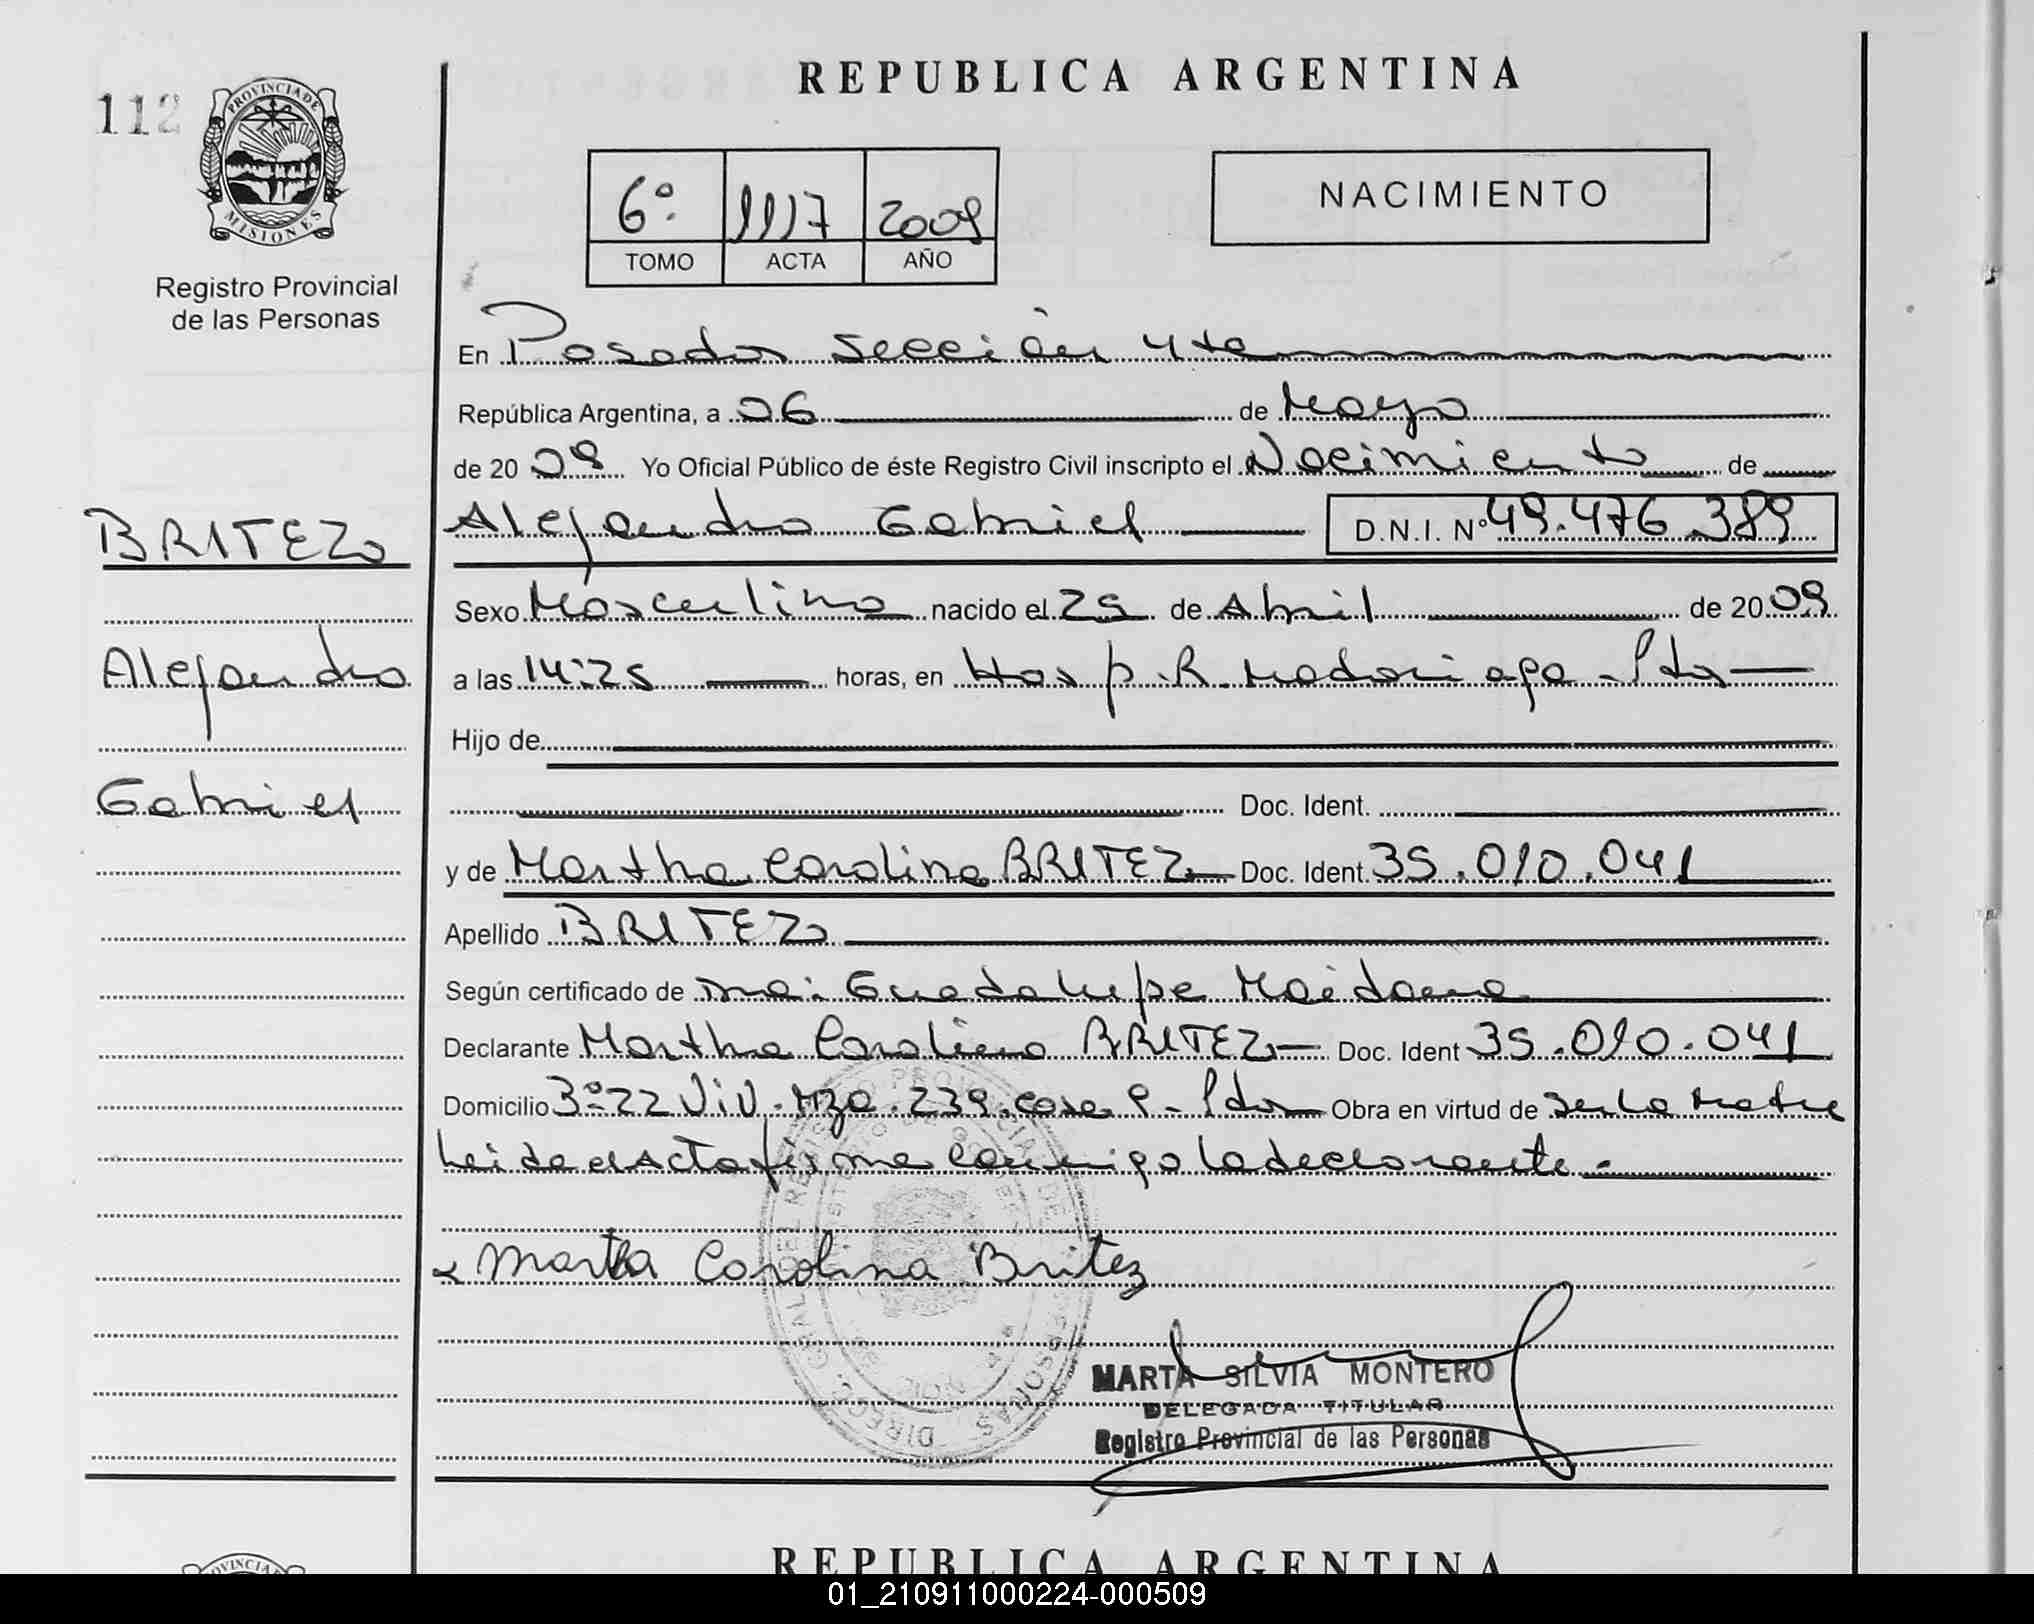 REPUBLICA ARGENTINA
112
PROVINCIA DE
MISIONES
Registro Provincial
de las Personas
6º 1117 2009
TOMO ACTA AÑO
NACIMIENTO
En Posadas Sección 4ta
República Argentina, a 06 de Mayo
de 2009 Yo Oficial Público de éste Registro Civil inscripto el Nacimiento de
BRITEZ
Alejandro Gabriel D.N.I. Nº 49.476.389
Sexo Masculino nacido el 29 de Abril de 2009
Alejandro
a las 14:25 horas, en Hosp. R. Madariaga - Pdas
Hijo de
Gabriel
Doc. Ident.
y de Martha Carolina BRITEZ Doc. Ident. 35.010.041
Apellido BRITEZ
Según certificado de Guadalupe Maidana
Declarante Martha Carolina BRITEZ Doc. Ident 35.010.041
Domicilio 3º 22 Viv. Mza. 239. casa Pdas Obra en virtud de ser la Madre
Leida el Acta firma conmigo la declarante.
Marta Carolina Britez
MARTA SILVIA MONTERO
DELEGADA TITULAR
Registro Provincial de las Personas
REPUBLICA ARGENTINA
01_210911000224-000509